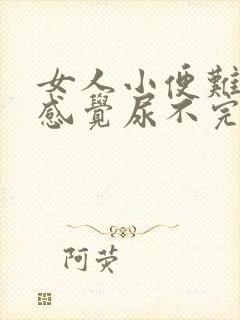 女人小便難
感覺尿不完
阿荧